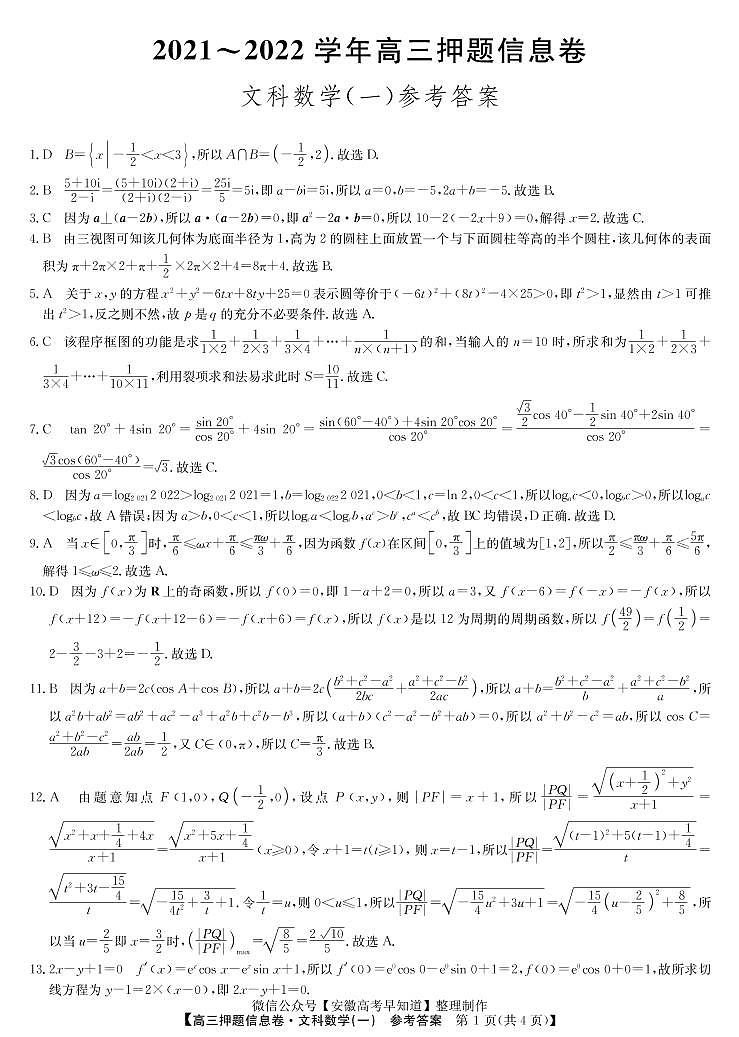 2021～2022 学年高三押题信息卷
文科数学(一)参考答案
1. D B={x|-1/2<x<3},所以 A∩B=(-1/2,2).故选 D.
2. B (5+10i)/(2-i)=(5+10i)(2+i)/((2+i)(2-i))=25i/5=5i,即 a-bi=5i,所以 a=0,b=-5,2a+b=-5.故选 B.
3. C 因为 a⊥(a-2b),所以 a·(a-2b)=0,即 a²-2a·b=0,所以 10-2(-2x+9)=0,解得 x=2.故选 C.
4. B 由三视图可知该几何体为底面半径为 1,高为 2 的圆柱上面放置一个与下面圆柱等高的半个圆柱,该几何体的表面
积为 π+2π×2+π+1/2×2π×2+4=8π+4.故选 B.
5. A 关于 x,y 的方程 x²+y²-6tx+8ty+25=0 表示圆等价于(-6t)²+(8t)²-4×25>0,即 t²>1,显然由 t>1 可推
出 t²>1,反之则不然,故 p 是 q 的充分不必要条件.故选 A.
6. C 该程序框图的功能是求 1/(1×2)+1/(2×3)+1/(3×4)+…+1/(n×(n+1)) 的和,当输入的 n=10 时,所求和为 1/(1×2)+1/(2×3)+
1/(3×4)+…+1/(10×11),利用裂项求和法易求此时 S=10/11.故选 C.
7. C tan 20°+4sin 20°=sin 20°/cos 20°+4sin 20°=(sin(60°-40°)+4sin 20°cos 20°)/cos 20°=(√3/2 cos 40°-1/2 sin 40°+2sin 40°)/cos 20°=
√3cos(60°-40°)/cos 20°=√3.故选 C.
8. D 因为 a=log₂ ₀₂₁2 022>log₂ ₀₂₁2 021=1,b=log₂ ₀₂₂2 021,0<b<1,c=ln 2,0<c<1,所以logₐc<0,log_b c>0,所以logₐc
<log_b c,故 A 错误;因为 a>b,0<c<1,所以log_c a<log_c b,a^c>b^c,c^a<c^b,故 BC 均错误,D 正确.故选 D.
9. A 当 x∈[0,π/3]时,π/6≤ωx+π/6≤πω/3+π/6,因为函数 f(x)在区间[0,π/3]上的值域为[1,2],所以 π/2≤πω/3+π/6≤5π/6,
解得 1≤ω≤2.故选 A.
10. D 因为 f(x)为 R 上的奇函数,所以 f(0)=0,即 1-a+2=0,所以 a=3,又 f(x-6)=f(-x)=-f(x),所以
f(x+12)=-f(x+12-6)=-f(x+6)=f(x),所以 f(x)是以 12 为周期的周期函数,所以 f(49/2)=f(1/2)=
2-3/2-3+2=-1/2.故选 D.
11. B 因为 a+b=2c(cos A+cos B),所以 a+b=2c((b²+c²-a²)/2bc+(a²+c²-b²)/2ac),所以 a+b=(b²+c²-a²)/b+(a²+c²-b²)/a,所
以 a²b+ab²=ab²+ac²-a³+a²b+c²b-b³,所以(a+b)(c²-a²-b²+ab)=0,所以 a²+b²-c²=ab,所以 cos C=
(a²+b²-c²)/2ab=ab/2ab=1/2,又 C∈(0,π),所以 C=π/3.故选 B.
12. A 由题意知点 F(1,0),Q(-1/2,0),设点 P(x,y),则|PF|=x+1,所以|PQ|/|PF|=√((x+1/2)²+y²)/(x+1)=
√(x²+x+1/4+4x)/(x+1)=√(x²+5x+1/4)/(x+1)(x≥0),令 x+1=t(t≥1),则 x=t-1,所以|PQ|/|PF|=√((t-1)²+5(t-1)+1/4)/t=
√(t²+3t-15/4)/t=√(-15/4t²+3/t+1).令 1/t=u,则 0<u≤1,所以|PQ|/|PF|=√(-15/4 u²+3u+1)=√(-15/4(u-2/5)²+8/5),所
以当 u=2/5 即 x=3/2 时,(|PQ|/|PF|)max=√(8/5)=2√10/5.故选 A.
13. 2x-y+1=0 f′(x)=eˣcos x-eˣsin x+1,所以 f′(0)=e⁰cos 0-e⁰sin 0+1=2,f(0)=e⁰cos 0+0=1,故所求切
线方程为 y-1=2×(x-0),即 2x-y+1=0.
微信公众号【安徽高考早知道】整理制作
【高三押题信息卷·文科数学(一) 参考答案 第 1 页(共 4 页)】